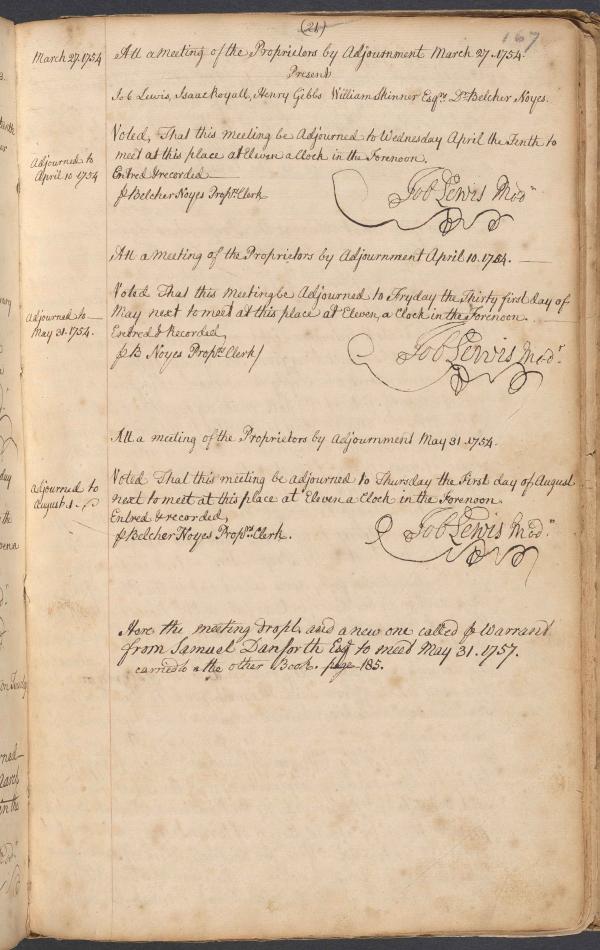 (21)
167
March 27. 1754
Att a meeting of the Proprietors by Adjournment March 27. 1754.
Present
Job Lewis, Isaac Royall, Henry Gibbs William Skinner Esqrs. Dr. Belcher Noyes.
Voted, That this meeting be Adjourned to Wednesday April the Tenth to
meet at this place at Eleven a Clock in the Forenoon.
Adjourned to
April 10 1754
Entred & recorded
p Belcher Noyes Proprs. Clerk
Job Lewis Modr.
Att a meeting of the Proprietors by Adjournment April 10. 1754.
Voted That this Meeting be Adjourned to Fryday the Thirty first day of
May next to meet at this place at Eleven, a Clock in the Forenoon.
Adjourned to
May 31. 1754.
Entred & Recorded,
p B Noyes Proprs. Clerk/
Job Lewis Modr.
Att a meeting of the Proprietors by Adjournment May 31. 1754.
Voted That this meeting be adjourned to Thursday the First day of August
next to meet at this place at Eleven a Clock in the Forenoon.
adjourned to
August. 1.
Entred & recorded,
p Belcher Noyes Proprs. Clerk.
Job Lewis Modr.
Here the meeting dropt, and a new one called p Warrant
from Samuel Danforth Esq to meet May 31. 1757.
carried to the other Book. page 185.